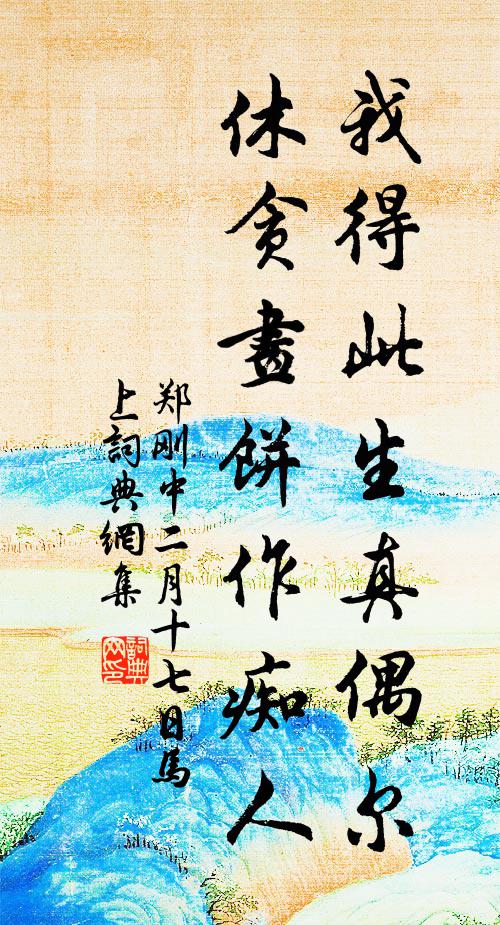 我得此生真偶尔
休贪畫餅作痴人
郑刚中二月十七日馬
上詞典網集
詞典
网印